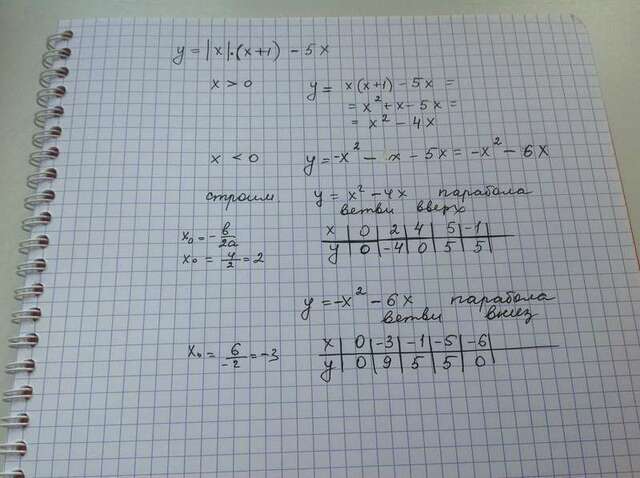 y = |x|·(x+1) − 5x
x > 0 y = x(x+1) − 5x =
= x² + x − 5x =
= x² − 4x
x < 0 y = −x² − x − 5x = −x² − 6x
строим y = x² − 4x парабола
ветви вверх
x₀ = − в/2a
x₀ = 4/2 = 2
x 0 2 4 5 −1
y 0 −4 0 5 5
y = −x² − 6x парабола
ветви вниз
x₀ = 6/−2 = −3
x 0 −3 −1 −5 −6
y 0 9 5 5 0